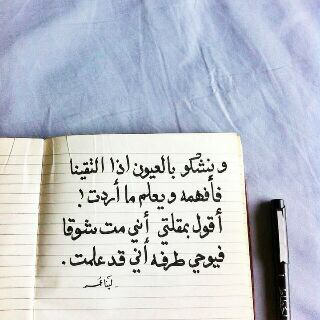 و ينشكو بالعيون اذا التقينا
فأفهمه و يعلم ما أردت !
أقول بمقلتي أني مت شوقا
فيوحي طرفه أني قد علمت .